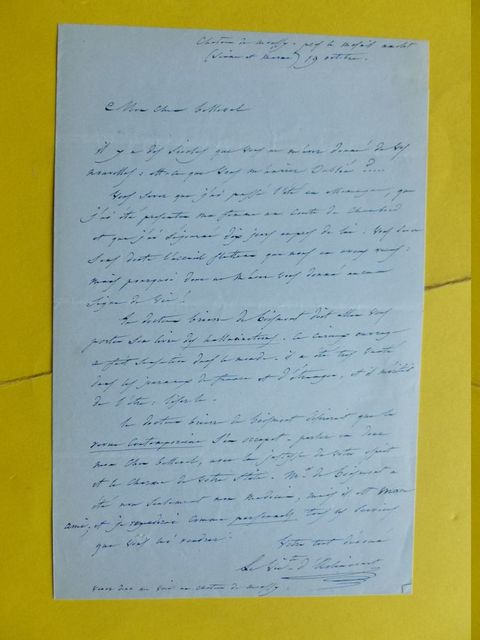 Château de
(Seine et Marne) 19 octobre.
Mon cher
il y a des siècles que vous ne m'avez donné de vos
nouvelles : est-ce que vous m'auriez oublié ?....
Vous savez que j'ai passé l'été en que
j'ai été présenter ma femme au Comte de Chambord
et que j'ai séjourné dix jours auprès de lui : vous
sans doute l'accueil flatteur que nous en avons reçu :
mais pourquoi donc ne m'avez vous donné aucun
signe de vie !
Le docteur brierre de Boismont doit aller vous
porter son livre des hallucinations. Ce curieux ouvrage
a fait sensation dans le monde. il a été très vanté
dans les journaux de france et d'étranger, et il
de l'être.
Le docteur brierre de Boismont désirerait que la
revue Contemporaine s'en occupât. parlez en donc
mon cher avec la justesse de votre esprit
et le charme de votre style. Mr. de Boismont a
été non seulement mon médecin, mais il est mon
ami, et je regarderai comme personnels tous les services
que vous lui rendrez.
Votre tout dévoué
Le Victe. d'Arlincourt
venez donc me voir au château de